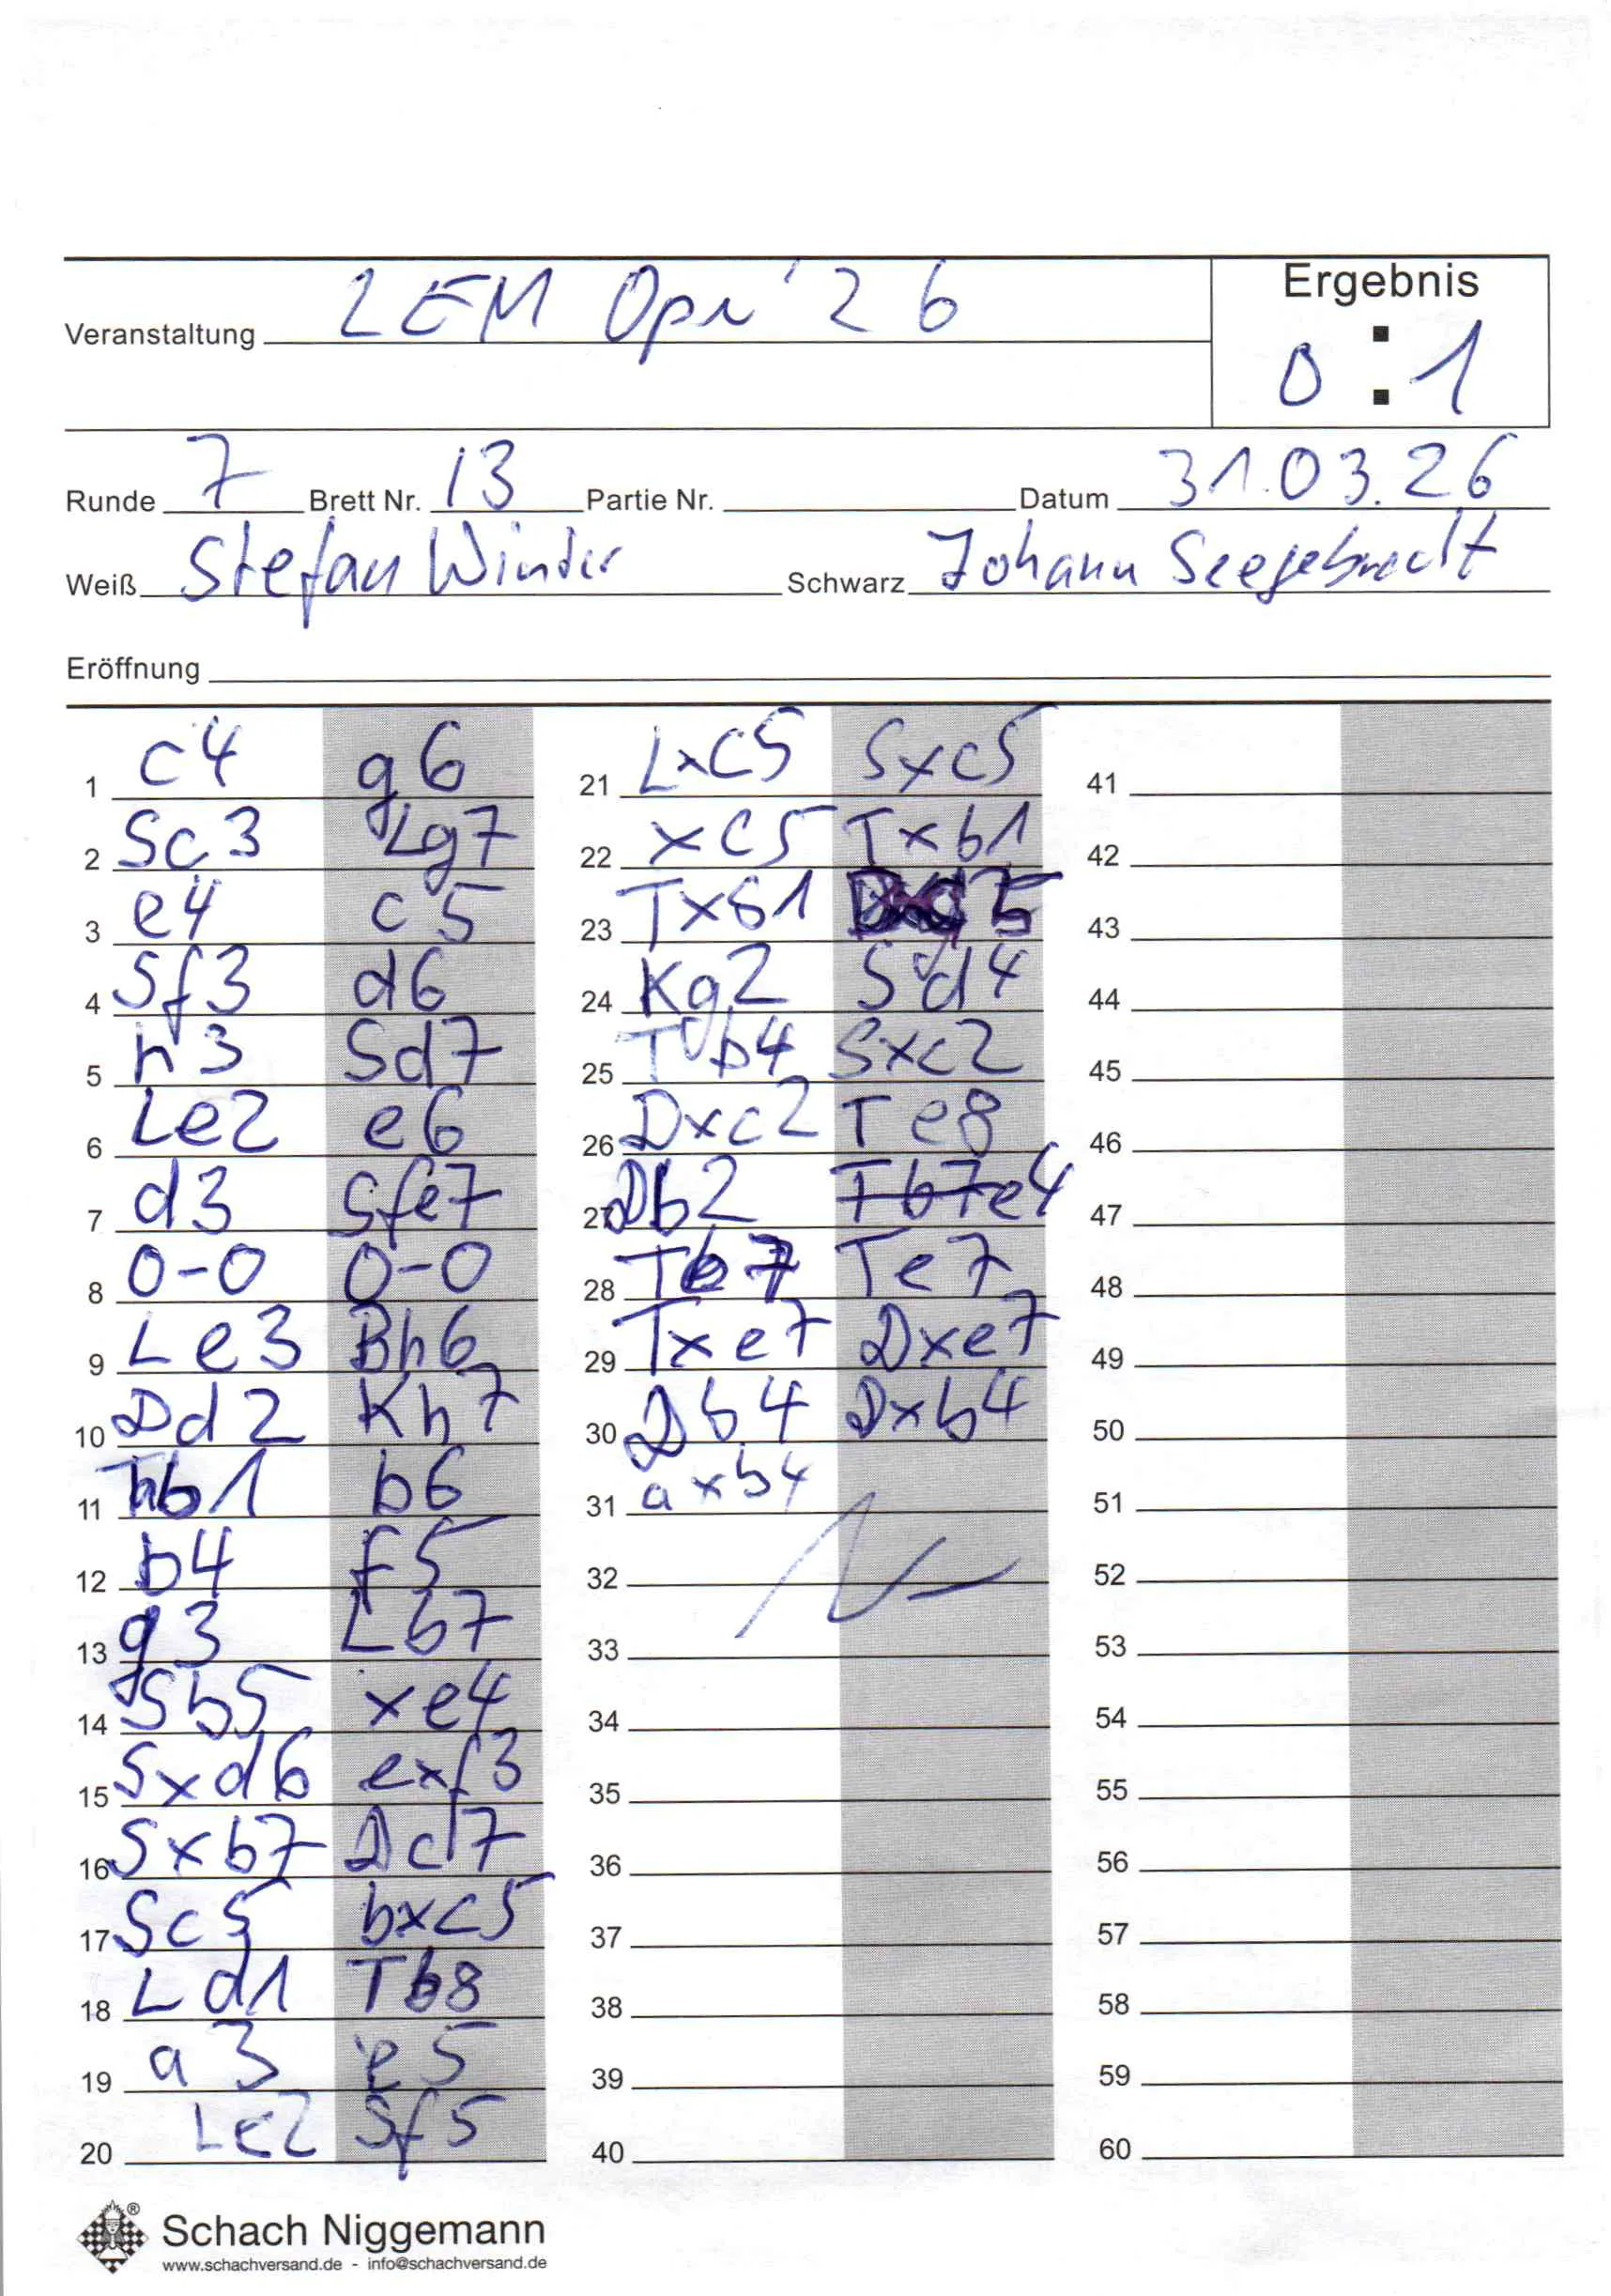 Ergebnis
Veranstaltung LEM Opn '26
0 : 1
Runde 7 Brett Nr. 13 Partie Nr. Datum 31.03.26
Weiß Stefan Winder Schwarz Johann Seegebrecht
Eröffnung
1 c4 g6
2 Sc3 Lg7
3 e4 c5
4 Sf3 d6
5 h3 Sd7
6 Le2 e6
7 d3 Sfe7
8 0-0 0-0
9 Le3 Bh6
10 Dd2 Kh7
11 Tab1 b6
12 b4 f5
13 g3 Lb7
14 Sb5 xe4
15 Sxd6 exf3
16 Sxb7 Dc7
17 Sc5 bxc5
18 Ld1 Tb8
19 a3 e5
20 Le2 Sf5
21 Lxc5 Sxc5
22 xc5 Txb1
23 Txb1
24 Kg2 Sd4
25 Tb4 Sxc2
26 Dxc2 Te8
27 Db2 Tb7 e4
28 Tb7 Te7
29 Txe7 Dxe7
30 Db4 Dxb4
31 axb4
32
33
34
35
36
37
38
39
40
41
42
43
44
45
46
47
48
49
50
51
52
53
54
55
56
57
58
59
60
®
Schach Niggemann
www.schachversand.de - info@schachversand.de